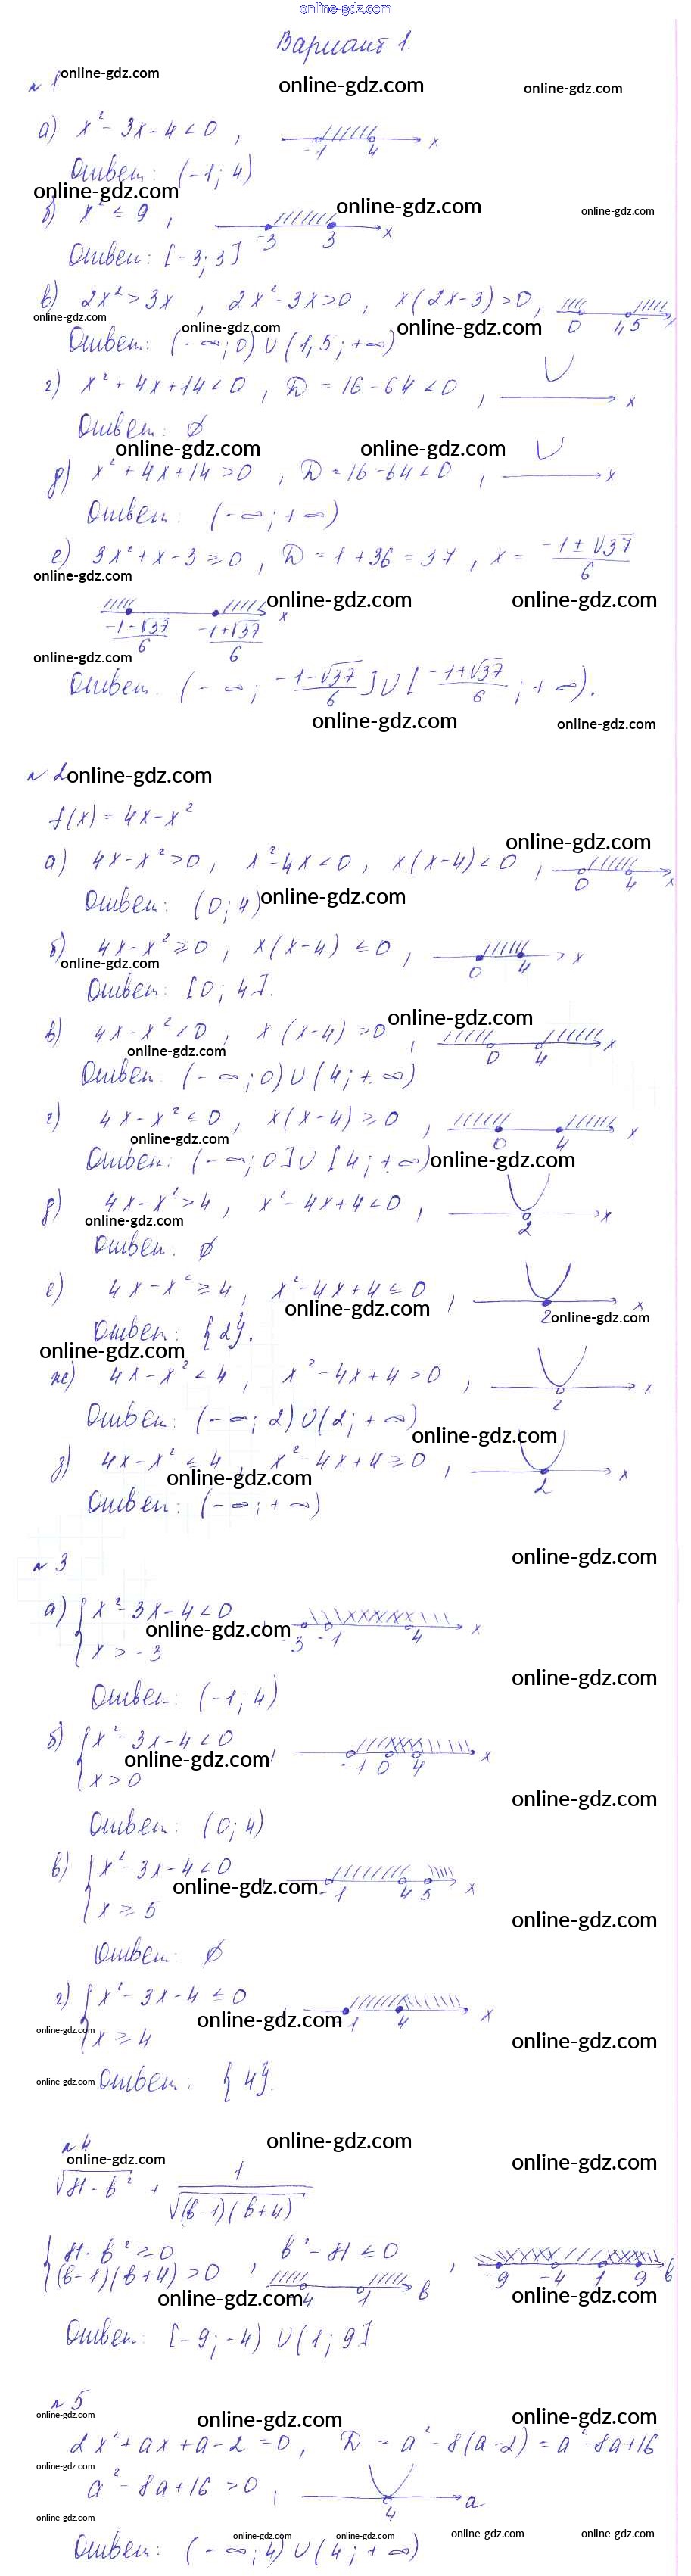 online-gdz.com
Вариант 1.
№ 1
online-gdz.com
online-gdz.com
online-gdz.com
а) x² - 3x - 4 < 0 ,
-1 4 x
Ответ: (-1; 4)
online-gdz.com
online-gdz.com
online-gdz.com
б) x² ≤ 9 ,
-3 3 x
Ответ: [-3; 3]
в) 2x² > 3x , 2x² - 3x > 0 , x(2x-3) > 0,
0 1,5 x
online-gdz.com
online-gdz.com
online-gdz.com
Ответ: (-∞; 0) ∪ (1,5; +∞)
г) x² + 4x + 14 < 0 , D = 16 - 64 < 0 ,
x
Ответ: ∅
online-gdz.com
online-gdz.com
д) x² + 4x + 14 > 0 , D = 16 - 64 < 0 ,
x
Ответ: (-∞; +∞)
е) 3x² + x - 3 ≥ 0 , D = 1 + 36 = 37 , x = (-1 ± √37)/6
online-gdz.com
online-gdz.com
online-gdz.com
(-1-√37)/6 (-1+√37)/6 x
online-gdz.com
Ответ: (-∞; (-1-√37)/6] ∪ [(-1+√37)/6; +∞).
online-gdz.com
online-gdz.com
№ 2
online-gdz.com
f(x) = 4x - x²
online-gdz.com
а) 4x - x² > 0 , x² - 4x < 0 , x(x-4) < 0 ,
0 4 x
Ответ: (0; 4)
online-gdz.com
б) 4x - x² ≥ 0 , x(x-4) ≤ 0 ,
0 4 x
online-gdz.com
Ответ: [0; 4].
online-gdz.com
в) 4x - x² < 0 , x(x-4) > 0 ,
0 4 x
online-gdz.com
Ответ: (-∞; 0) ∪ (4; +∞)
г) 4x - x² ≤ 0 , x(x-4) ≥ 0 ,
0 4 x
online-gdz.com
Ответ: (-∞; 0] ∪ [4; +∞)
online-gdz.com
д) 4x - x² > 4 , x² - 4x + 4 < 0 ,
2 x
online-gdz.com
Ответ: ∅
е) 4x - x² ≥ 4 , x² - 4x + 4 ≤ 0 ,
2 x
online-gdz.com
online-gdz.com
Ответ: {2}.
online-gdz.com
ж) 4x - x² < 4 , x² - 4x + 4 > 0 ,
2 x
Ответ: (-∞; 2) ∪ (2; +∞)
online-gdz.com
з) 4x - x² ≤ 4 , x² - 4x + 4 ≥ 0 ,
2 x
online-gdz.com
Ответ: (-∞; +∞)
online-gdz.com
№ 3
а) { x² - 3x - 4 < 0
x > -3
-3 -1 4 x
online-gdz.com
online-gdz.com
Ответ: (-1; 4)
б) { x² - 3x - 4 < 0
x > 0
-1 0 4 x
online-gdz.com
online-gdz.com
Ответ: (0; 4)
в) { x² - 3x - 4 < 0
x ≥ 5
-1 4 5 x
online-gdz.com
online-gdz.com
Ответ: ∅
г) { x² - 3x - 4 ≤ 0
x ≥ 4
1 4 x
online-gdz.com
online-gdz.com
online-gdz.com
online-gdz.com
Ответ: {4}.
№ 4
online-gdz.com
online-gdz.com
online-gdz.com
√(81 - b²) + 1/√((b-1)(b+4))
{ 81 - b² ≥ 0 , b² - 81 ≤ 0 ,
(b-1)(b+4) > 0
4 1 b
-9 -4 1 9 b
online-gdz.com
online-gdz.com
Ответ: [-9; -4) ∪ (1; 9]
№ 5
online-gdz.com
online-gdz.com
online-gdz.com
2x² + ax + a - 2 = 0 , D = a² - 8(a-2) = a² - 8a + 16
online-gdz.com
a² - 8a + 16 > 0 ,
4 a
online-gdz.com
online-gdz.com
online-gdz.com
online-gdz.com
online-gdz.com
Ответ: (-∞; 4) ∪ (4; +∞)